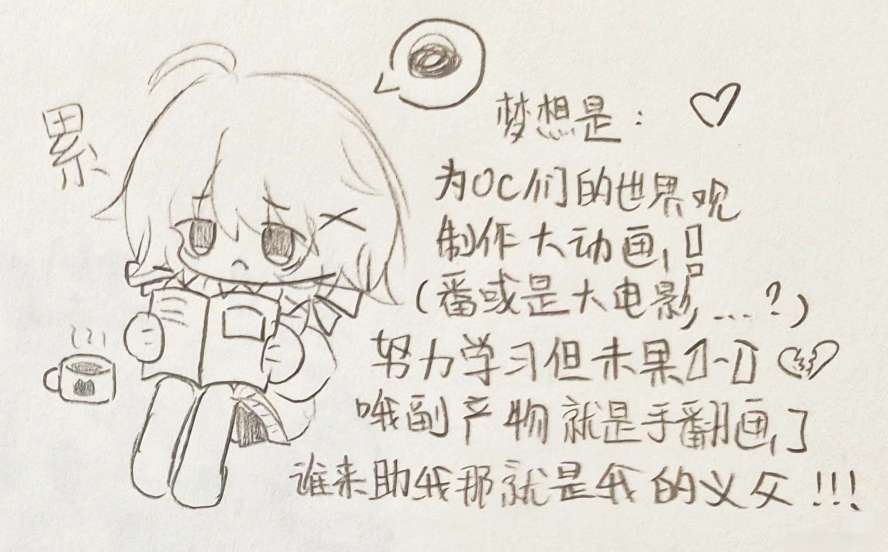 累
梦想是：
为OC们的世界观
制作大动画，
（番或是大电影，...？）
努力学习但未果
哦副产物就是手翻画，
谁来助我那就是我的义父!!!